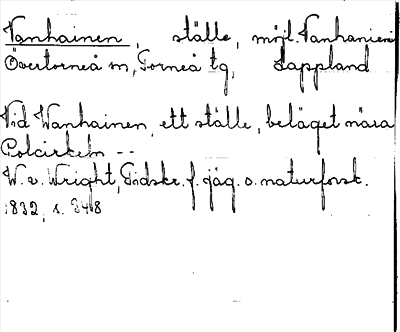 Vanhainen, ställe, möjl. Vanhanien
Övertorneå sn, Torneå tg, Lappland
Vid Wanhainen, ett ställe, beläget nära
Polcirkeln --
W. v. Wright, Tidskr. f. jäg. o. naturforsk.
1832, s. 348